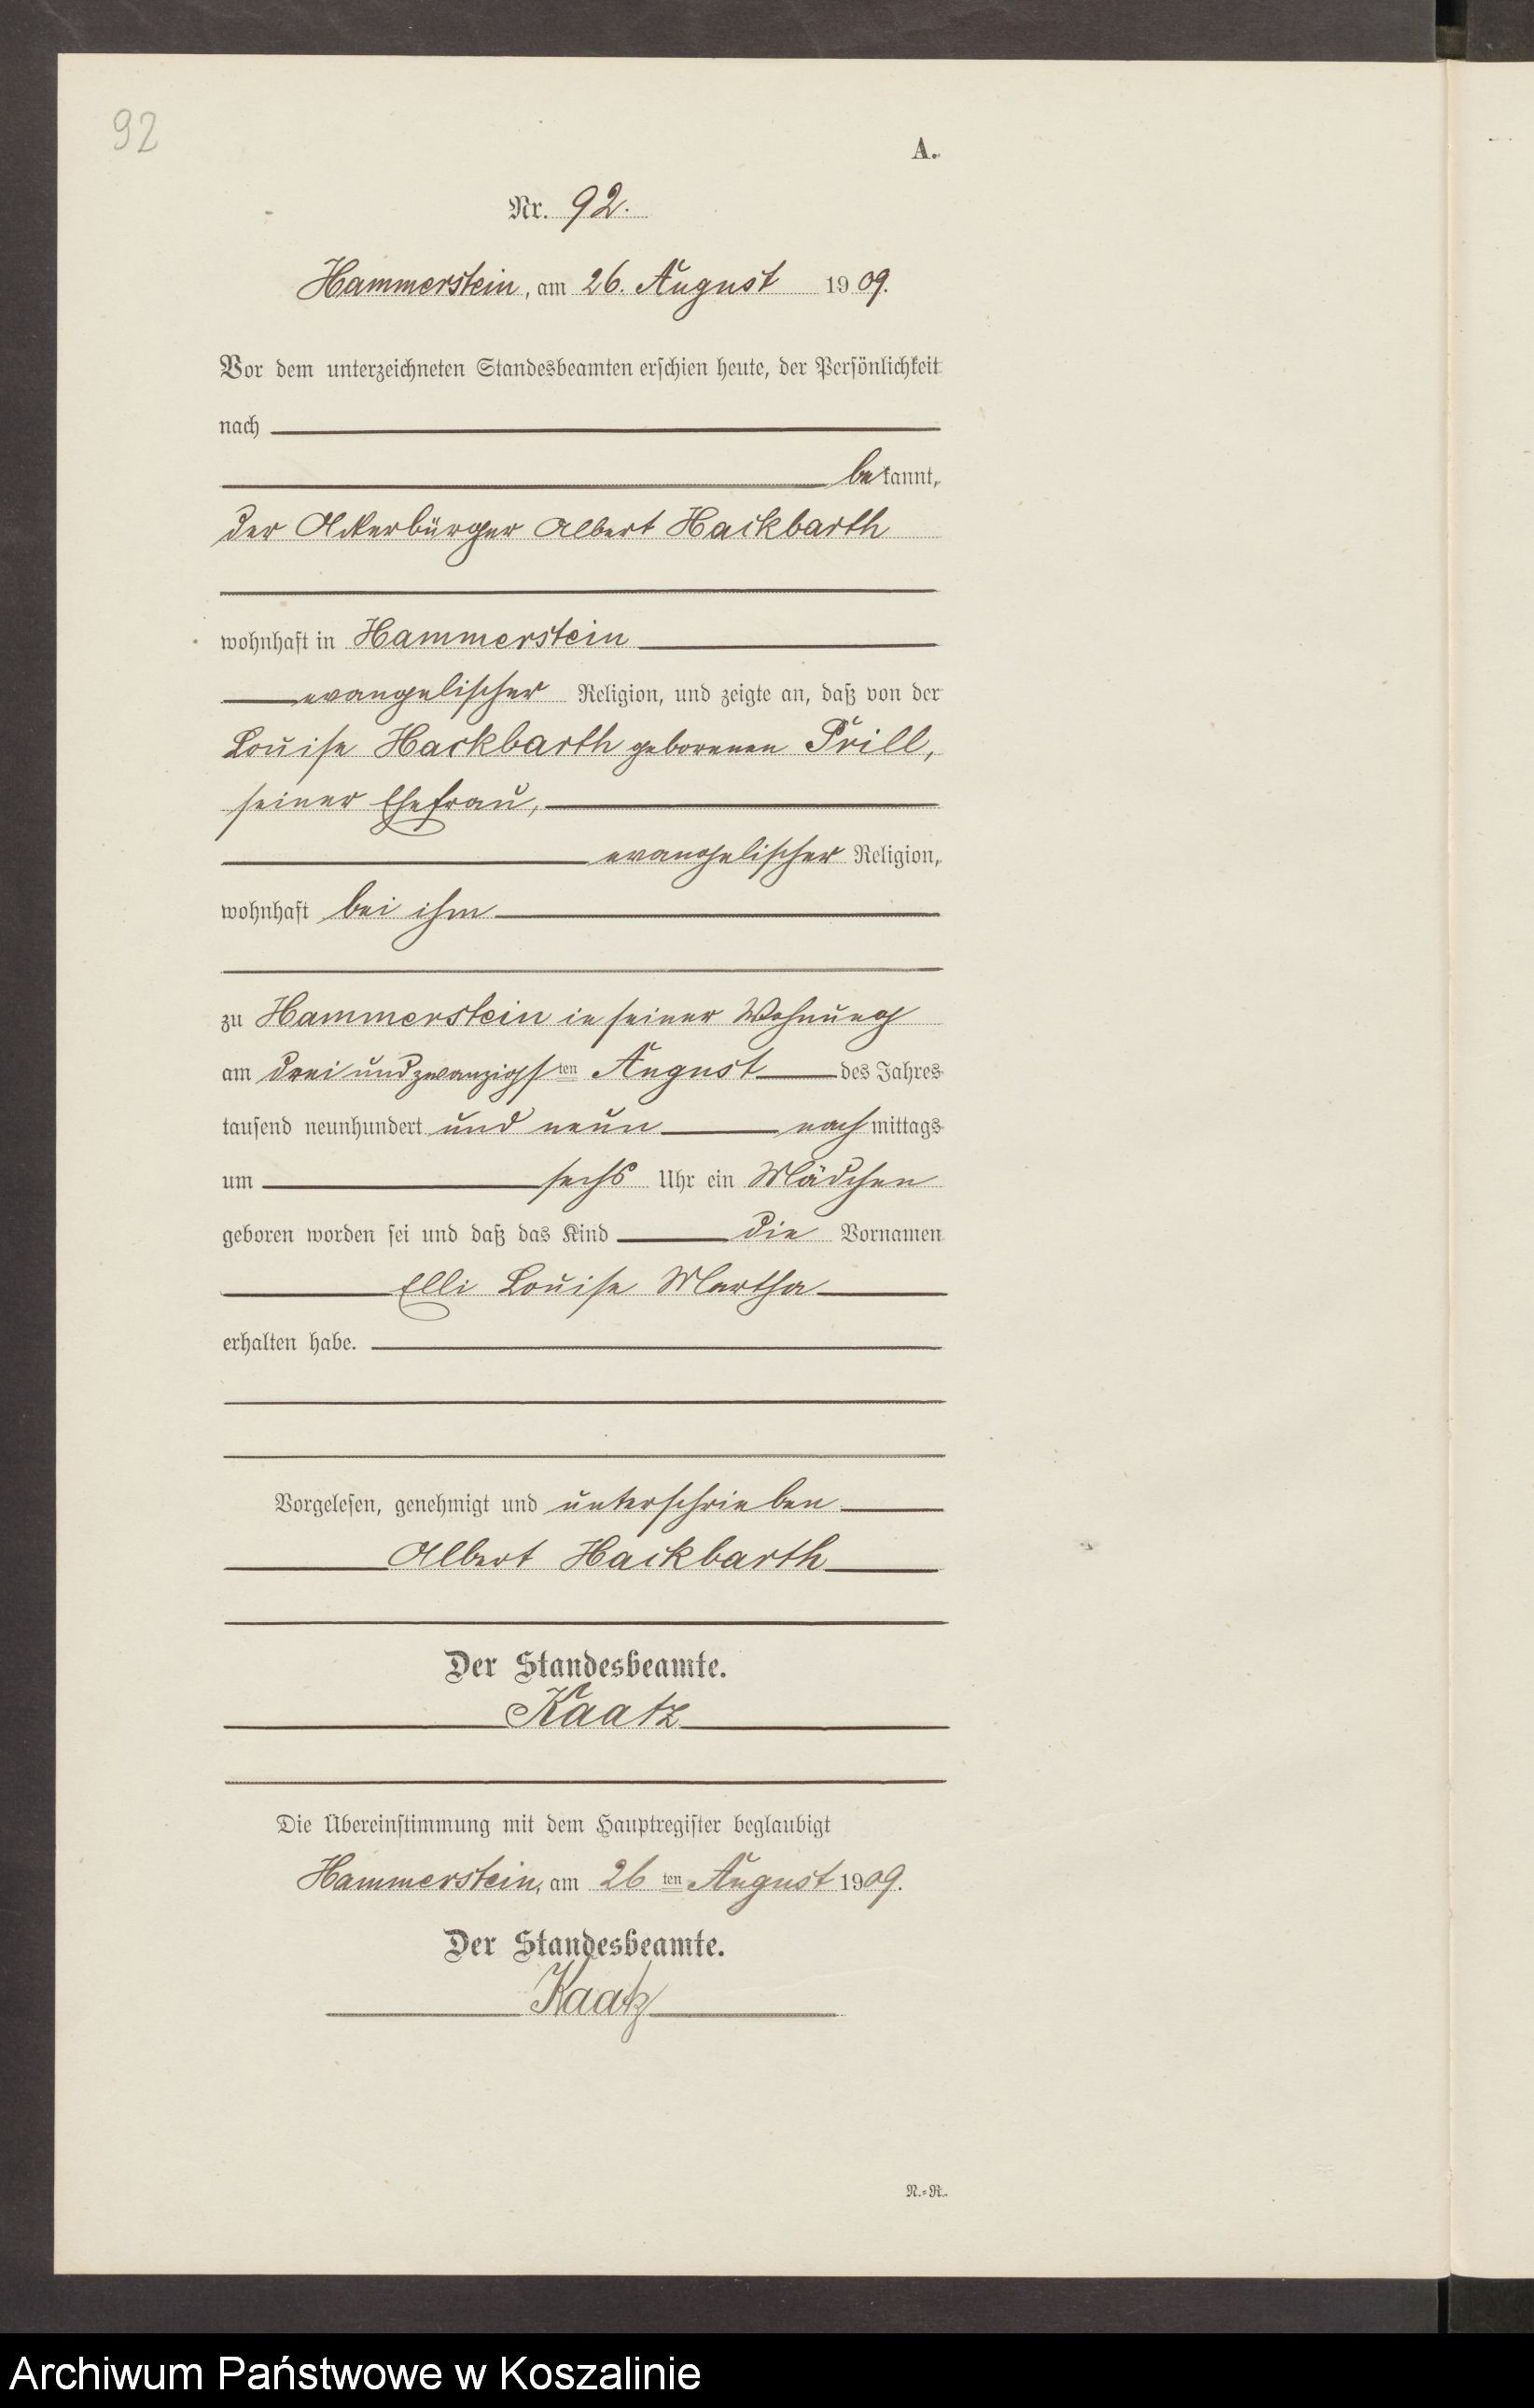 92
A.
Nr. 92.
Hammerstein, am 26. August 1909.
Vor dem unterzeichneten Standesbeamten erschien heute, der Persönlichkeit
nach
bekannt,
der Ackerbürger Albert Hackbarth
wohnhaft in Hammerstein
evangelischer Religion, und zeigte an, daß von der
Louise Hackbarth geborenen Prill,
seiner Ehefrau,
evangelischer Religion,
wohnhaft bei ihm
zu Hammerstein in seiner Wohnung
am dreiundzwanzigsten August des Jahres
tausend neunhundert und neun nachmittags
um sechs Uhr ein Mädchen
geboren worden sei und daß das Kind die Vornamen
Elli Louise Martha
erhalten habe.
Vorgelesen, genehmigt und unterschrieben
Albert Hackbarth
Der Standesbeamte.
Kaatz
Die Übereinstimmung mit dem Hauptregister beglaubigt
Hammerstein, am 26ten August 1909.
Der Standesbeamte.
Kaatz
N.-R.
Archiwum Państwowe w Koszalinie